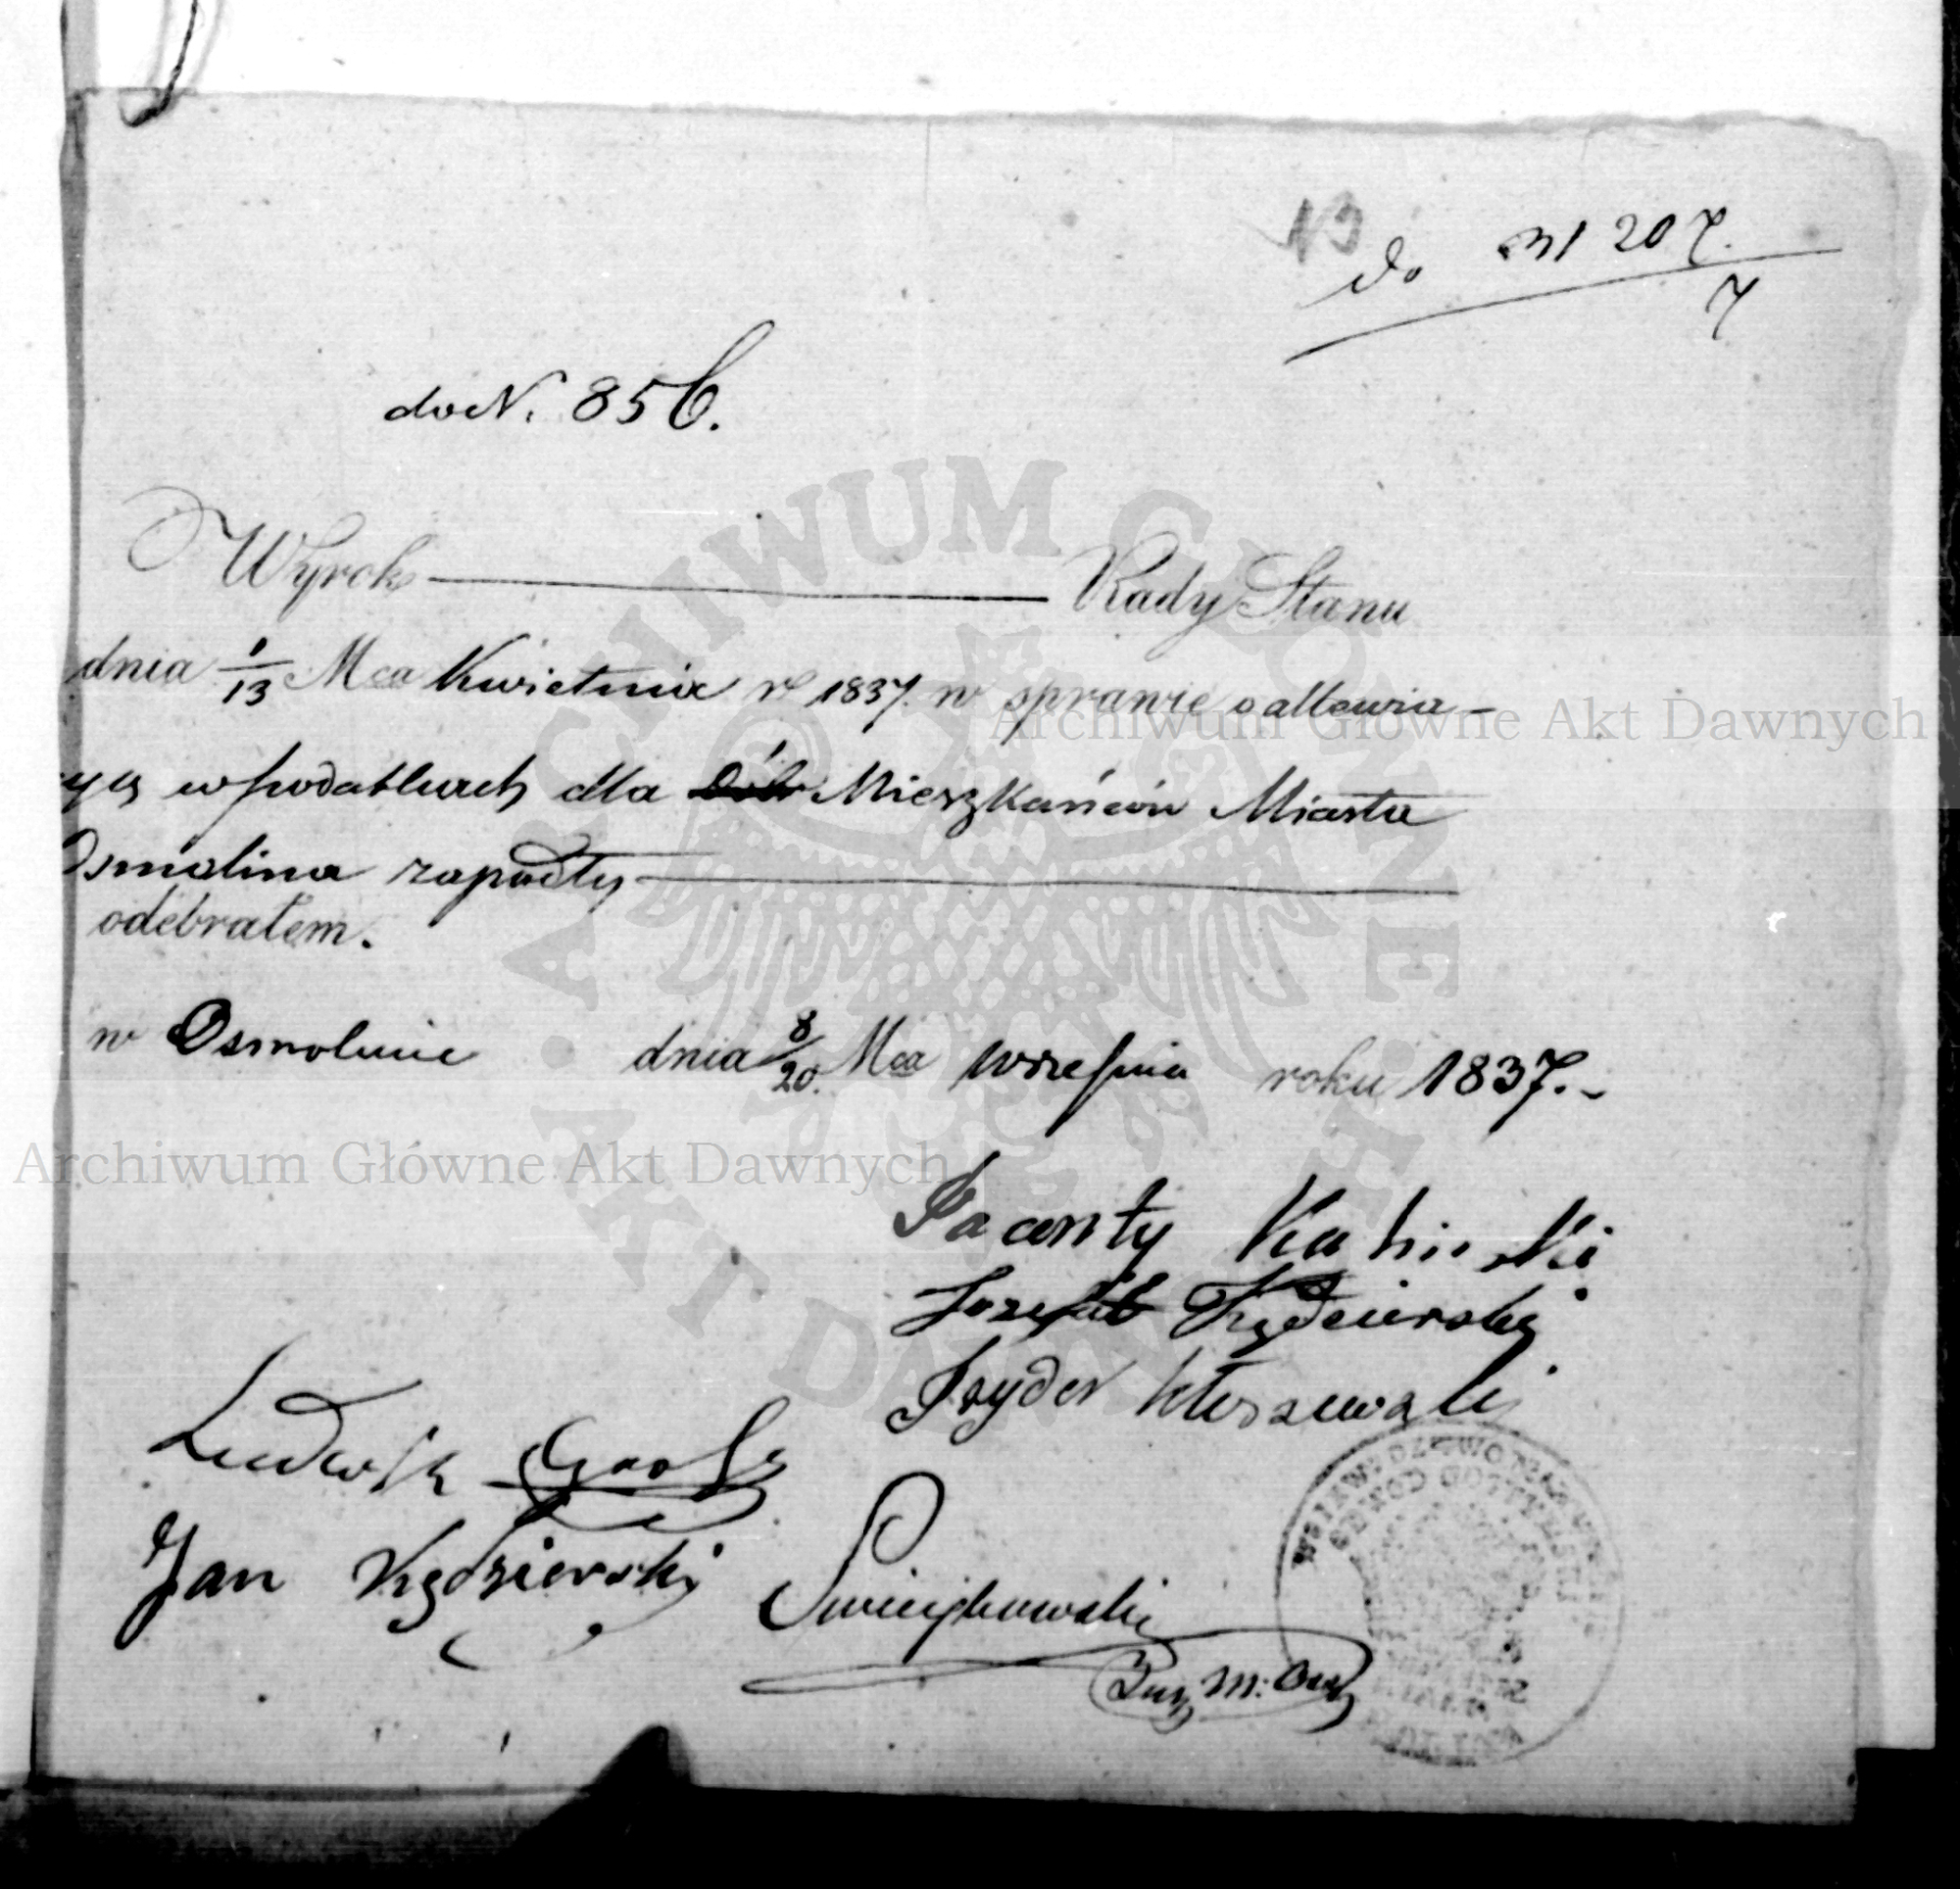 13
do 31 207.
7
do N. 856.
Wyrok Rady Stanu
dnia 1/13 Mca Kwietnia r. 1837. w sprawie o allewia-
cyą w podatkach dla Dóbr Mieszkańców Miasta
Osmolina zapadły
odebrałem.
w Osmolinie dnia 8/20. Mca Września roku 1837.-
Jacenty
Jozefat Kędzierski
Izydor
Ludwik
Jan Kędzierski
Archiwum Główne Akt Dawnych
Archiwum Główne Akt Dawnych
ARCHIWUM GŁÓWNE AKT DAWNYCH